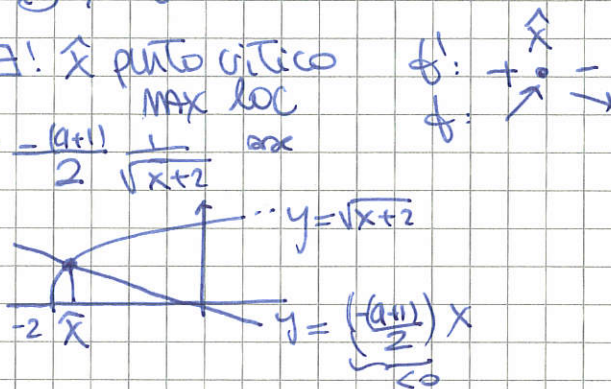 ∃! x̂ punto critico f': + • −
x̂
MAX LOC f: ↗ ↘
−(a+1)/2 1/√(x+2)
··· y=√(x+2)
-2 x̂ y = (−(a+1)/2) x
<0